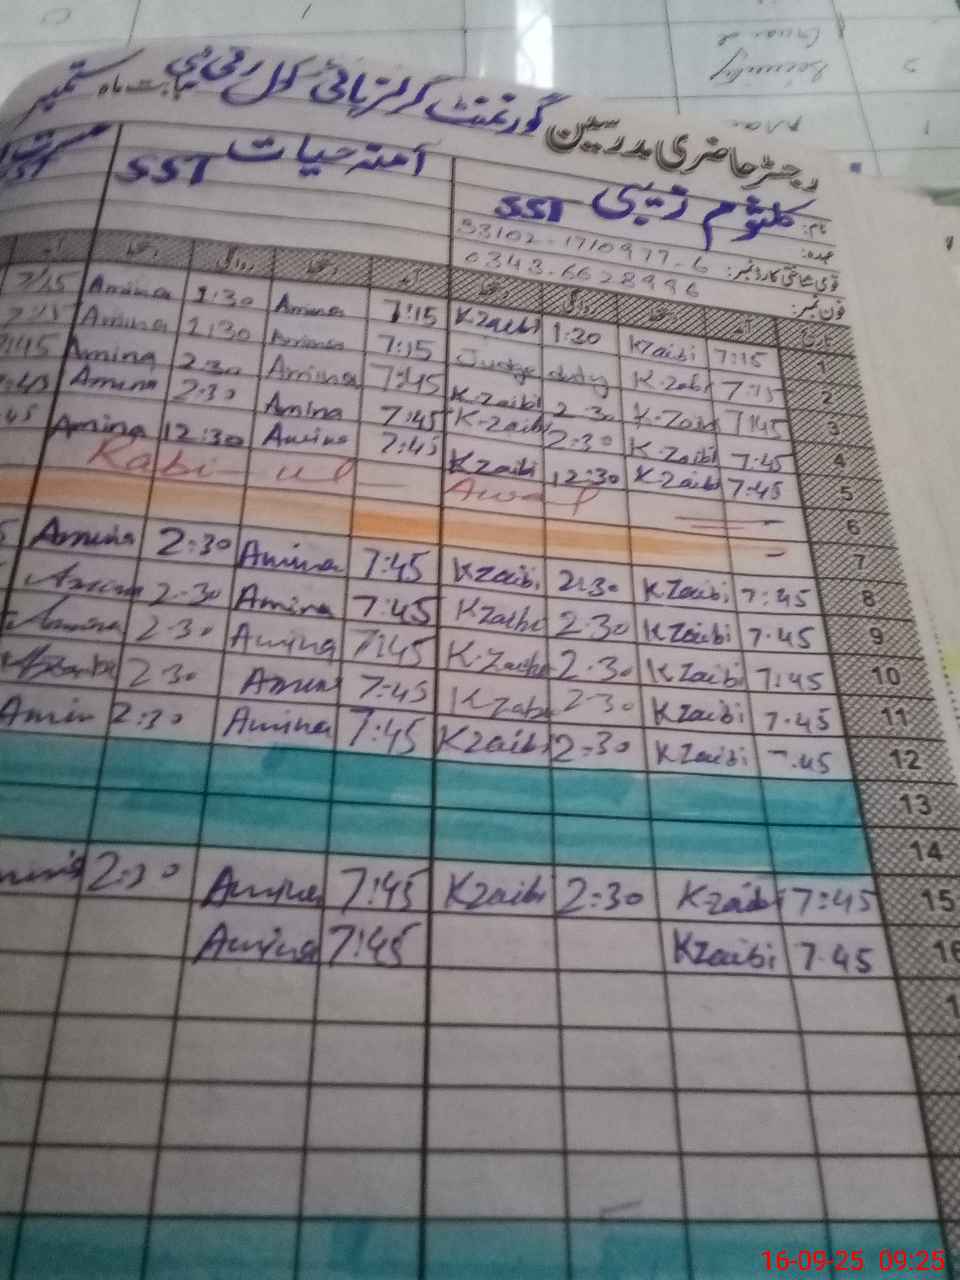 رجسٹر حاضری مدرسین گورنمنٹ گرلز ہائی بابت ماہ ستمبر
نام: کلثوم زیبی SST آمنہ حیات SST
عہدہ:
قومی شناختی کارڈ نمبر: 53102-1710977-6
فون نمبر: 0343-6628996
تاریخ آمد دستخط روانگی دستخط آمد دستخط روانگی دستخط آمد
1 7:15 KZaibi 1:30 KZaibi 7:15 Amina 1:30 Amina 7:15
2 7:15 K.Zabi Judge duty 7:15 Amina 1:30 Amina 7:15
3 7:45 K.Zaibi 2:30 K.Zaibi 7:45 Amina 2:30 Amina 7:45
4 7:45 K.Zaibi 2:30 K-Zaibi 7:45 Amina 2:30 Amina 7:45
5 7:45 K.Zaibi 12:30 KZaibi 7:45 Amina 12:30 Amina 45
6 Rabi-ul-Awal
7
8 7:45 KZaibi 2:30 KZaibi 7:45 Amina 2:30 Amina
9 7.45 KZaibi 2:30 KZaibi 7:45 Amina 2:30 Amina
10 7:45 KZaibi 2:30 K.Zaibi 7:45 Amina 2:30 Amina
11 7.45 KZaibi 2:30 KZabi 7:45 Amina 2:30
12 7.45 KZaibi 2:30 KZaibi 7:45 Amina 2:30 Amin
13
14
15 7:45 KZaibi 2:30 KZaibi 7:45 Amina 2:30
16 7.45 KZaibi 7:45 Amina
16-09-25 09:25